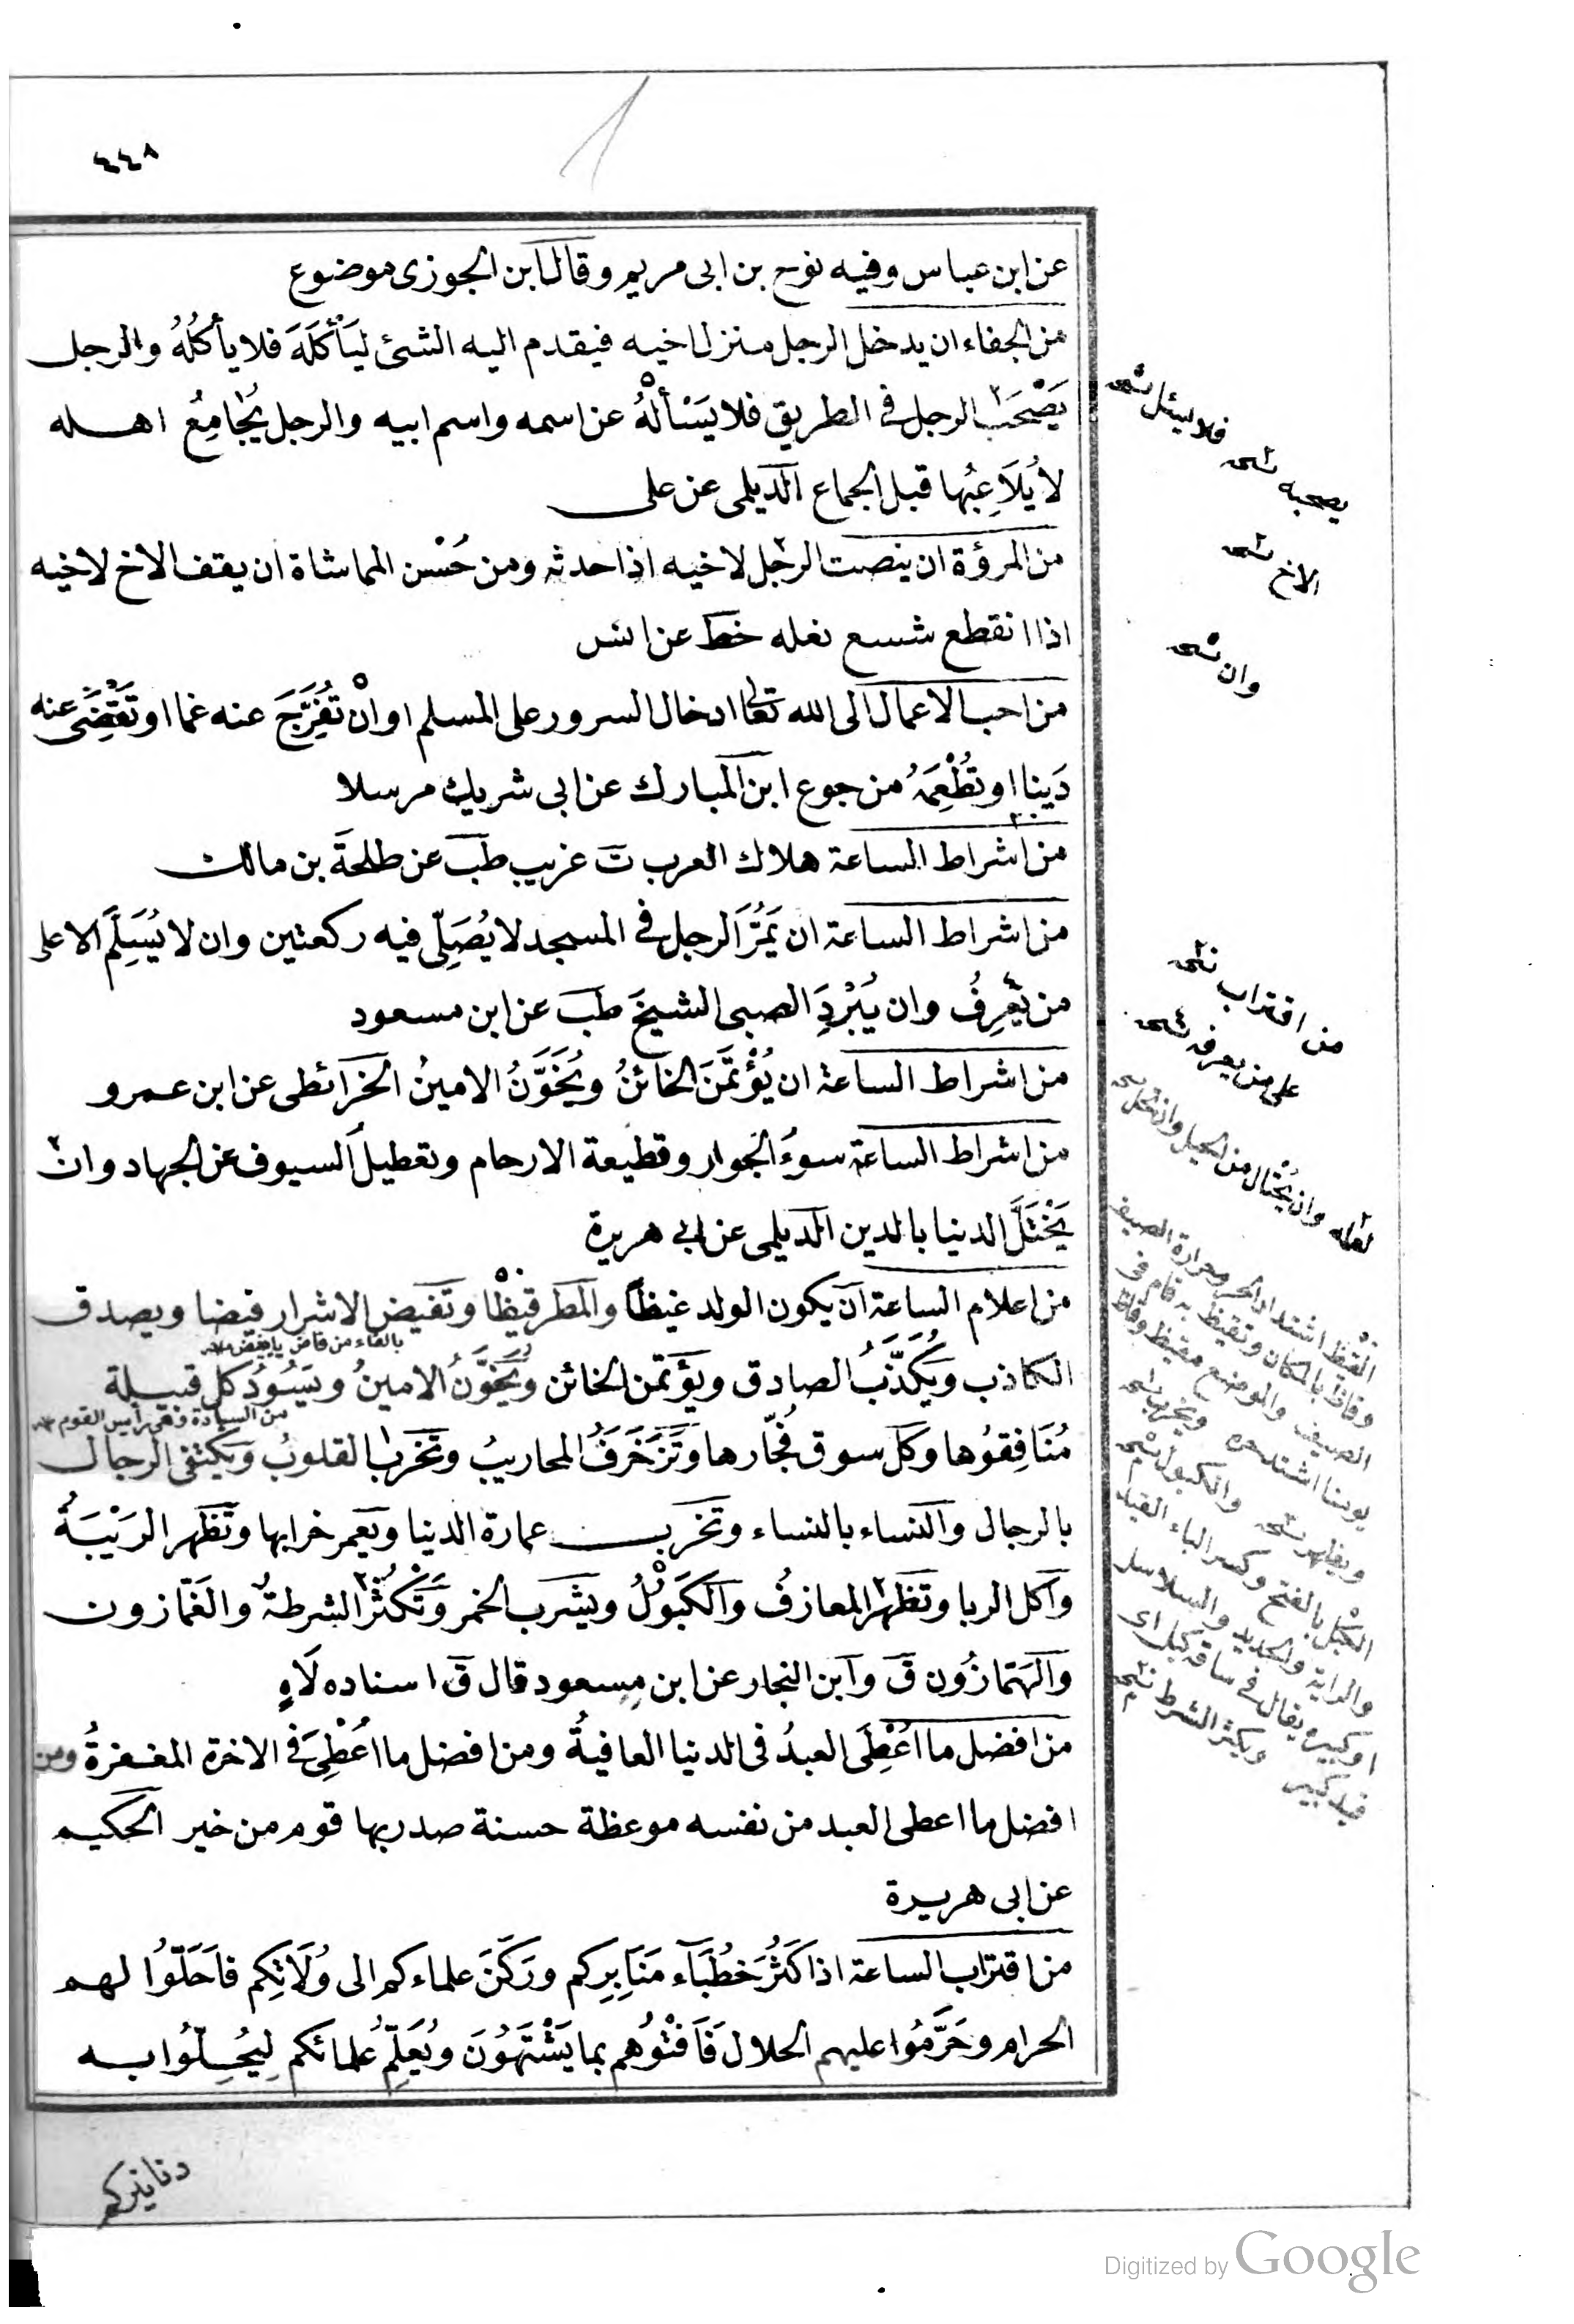 ٤٤٨
عن ابن عباس وفيه نوح بن ابى مريم وقال ابن الجوزى موضوع
من الجفاء ان يدخل الرجل منزل اخيه فيقدم اليه الشئ لِيَأْكُلَهُ فلا يأكُلُهُ والرجل
يَصْحَبُ الرجل فى الطريق فلا يَسْألْهُ عن اسمه واسم ابيه والرجل يُجَامِعُ اهله
لا يُلَاعِبُها قبل الجماع الديلمى عن على
من المرؤة ان ينصت الرجل لاخيه اذا حدثه ومن حُسْن المماشاة ان يقف الاخ لاخيه
اذا انقطع شسع نعله خط عن انس
من احب الاعمال الى الله تعالى ادخال السرور على المسلم او انْ تُفَرِّجَ عنه غما او تَقْضِىَ عنه
دَينا او تُطْعِمَهُ من جوع ابن المبارك عن ابى شريك مرسلا
من اشراط الساعة هلاك العرب ت غريب طب عن طلحة بن مالك
من اشراط الساعة ان يَمُرَّ الرجل فى المسجد لا يُصَلِّى فيه ركعتين وان لا يُسَلِّمَ الا على
من يَعْرِفُ وان يُبْرِدَ الصبى الشيخَ طب عن ابن مسعود
من اشراط الساعة ان يُؤْتَمَنَ الخائنُ ويُخَوَّنُ الامينُ الخرائطى عن ابن عمرو
من اشراط الساعة سوءُ الجوار وقطيعة الارحام وتعطيل السيوف عن الجهاد وان
يَخْتَلَّ الدنيا بالدين الديلمى عن ابى هريرة
من اعلام الساعة ان يكون الولد غيظا والمطر قيظْا وتفيض الاشرار فيضا ويصدق
بالفاء من فاض يافيض
الكاذب ويُكَذَّبُ الصادق ويؤتمن الخائن ويُخَوَّنُ الامينُ ويَسُودُ كل قبيلة
من السيادة وهى رأس القوم
مُنَافِقوُها وكل سوق فُجّارها وتَزَخْرَفُ المحاريبُ وتخرب القلوبُ ويكتفى الرجال
بالرجال والنساء بالنساء وتخرب عمارة الدنيا ويعمر خرابها وتظهر الرَيْبَةُ
وآكل الربا وتظهر المعازفُ والكَبَوْلُ ويشرب الخمر وتَكْثُرُ الشرطة والغَمّازون
والهَمَّازُون ق وابن النجار عن ابن مسعود قال ق اسناده لَاهٍ
من افضل ما اُعْطِىَ العبدُ فى الدنيا العافيةُ ومن افضل ما اُعْطِىَ فى الاخرة المغفرةُ ومن
افضل ما اعطى العبد من نفسه موعظة حسنة صدر بها قوم من خير الحكيم
عن ابى هريرة
من اقتراب الساعة اذا كَثُرَ خُطَبَآء مَنَابِرِكم ورَكَنَ علماءكم الى وُلَاتِكم فاَحَلّوُا لهم
الحرام وحَرَّمُوا عليهم الحلال فَاَفْتُوُهم بما يَشْتَهُوُنَ ويُعَلِّمُ علمائكم لِيُحِلّوُا به
دنانيركم
فلا يسئل نسخه
يصحبه نسخه
الاخ نسخه
وان نسخه
من اقتراب نسخه
على من يعرفه نسخه
القيظ اشتداد الحر وحرارة الصيف
وقاظ بالمكان وتقيظ به قام فى
الصيف والموضع مقيظ وقاظ
يومنا اشتد حره ويخرب نسخه
ويظهر نسخه والكبول نسخه
الكبل بالفتح وكسر الباء القيد
ويكثر الشرط نسخه
Digitized by Google